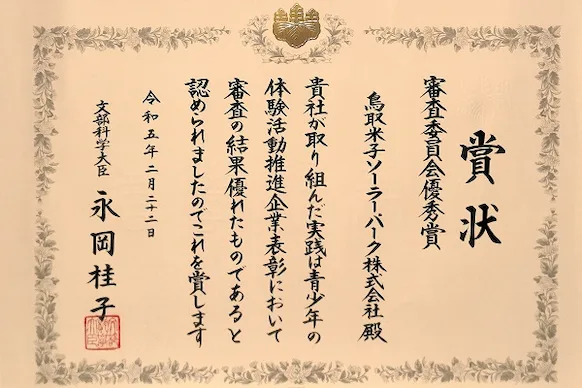 賞状
審査委員会優秀賞
鳥取米子ソーラーパーク株式会社殿
貴社が取り組んだ実践は青少年の
体験活動推進企業表彰において
審査の結果優れたものであると
認められましたのでこれを賞します
令和五年二月二十二日
文部科学大臣 永岡桂子